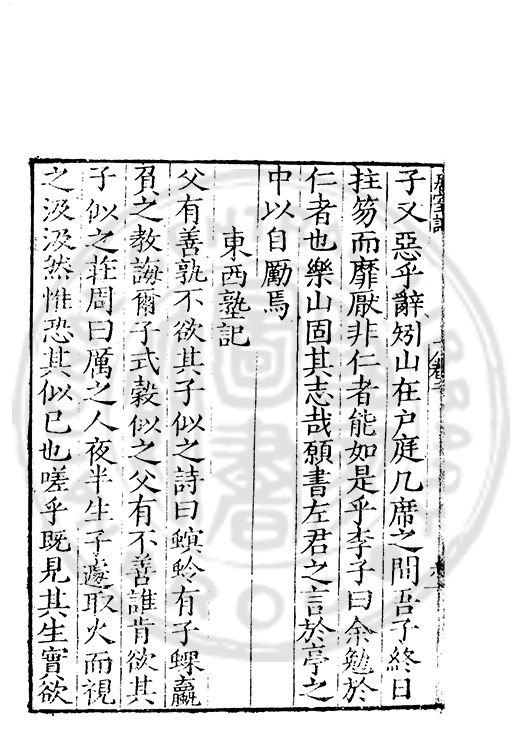 子又惡乎辭矧山在户庭几席之間吾子終日
拄笏而靡厭非仁者能如是乎李子曰余勉於
仁者也樂山固其志哉願書左君之言於亭之
中以自勵焉
東西塾記
父有善孰不欲其子似之詩曰螟蛉有子蜾蠃
負之教誨爾子式榖似之父有不善誰肯欲其
子似之莊周曰厲之人夜半生子遽取火而視
之汲汲然惟恐其似已也嗟乎既見其生實欲